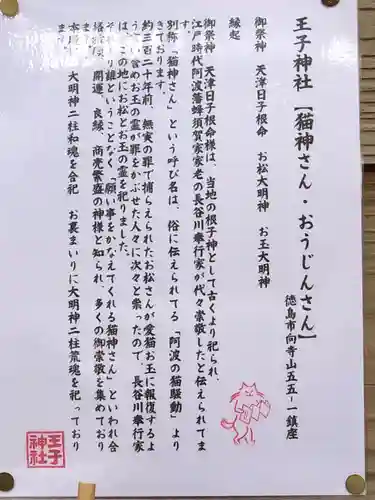 王子神社 [猫神さん・おうじんさん]
徳島市向寺山五五-一鎮座
御祭神 天津日子根命 お松大明神 お玉大明神
縁起
御祭神 天津日子根命様は、当地の根子神として古くより祀られ、
江戸時代阿波藩蜂須賀家家老の長谷川奉行家が代々崇敬したと伝えられてま
す。
別称「猫神さん」という呼び名は、俗に伝えられてる「阿波の猫騒動」より
きております。
約三百二十年前、無実の罪で捕らえられたお松さんが愛猫お玉に報復するよ
う言い含めお玉の霊が罪をかぶせた人々に次々と祟ったので、長谷川奉行家
は、この地にお松とお玉の霊を祀りました。
それより誰ということなく「願い事をかなえてくれる猫神さん」といわれ合
格祈願、開運、良縁、商売繁盛の神様と知られ、多くの御崇敬を集めており
ます。
本殿に大明神二柱和魂を合祀 お裏まいりに大明神二柱荒魂を祀っており
ます
王子
神社